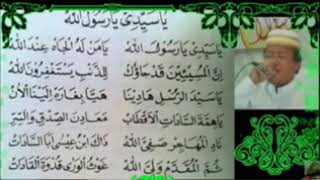 يَا سَيِّدِيْ يَا رَسُوْلَ اللهْ
يَا سَيِّدِيْ يَا رَسُوْلَ اللهْ يَا مَنْ لَهُ الْجَاهْ عِنْدَ اللهْ
إِنَّ الْمُسِيْئِيْنَ قَدْ جَاؤُكْ لِلذَّنْبِ يَسْتَغْفِرُوْنَ اللهْ
يَا سَيِّدَ الرُّسْلِ هَادِيْنَا هَيَّا بِغَارَةْ إِلَيْنَا الْآنَ
يَا هِمَّةَ السَّادَاتِ الْأَقْطَابْ مَعَادِنَ الصِّدْقِ وَالسِّرِّ
نَادِ الْمُهَاجِرْ صَفِيَّ اللهْ ذَاكَ ابْنَ عِيْسَى أَبَا السَّادَاتْ
ثُمَّ الْمُقَدَّمْ وَلِيَّ اللهْ غَوْثَ الْوَرَى قُدْوَةَ الْقَادَاتْ